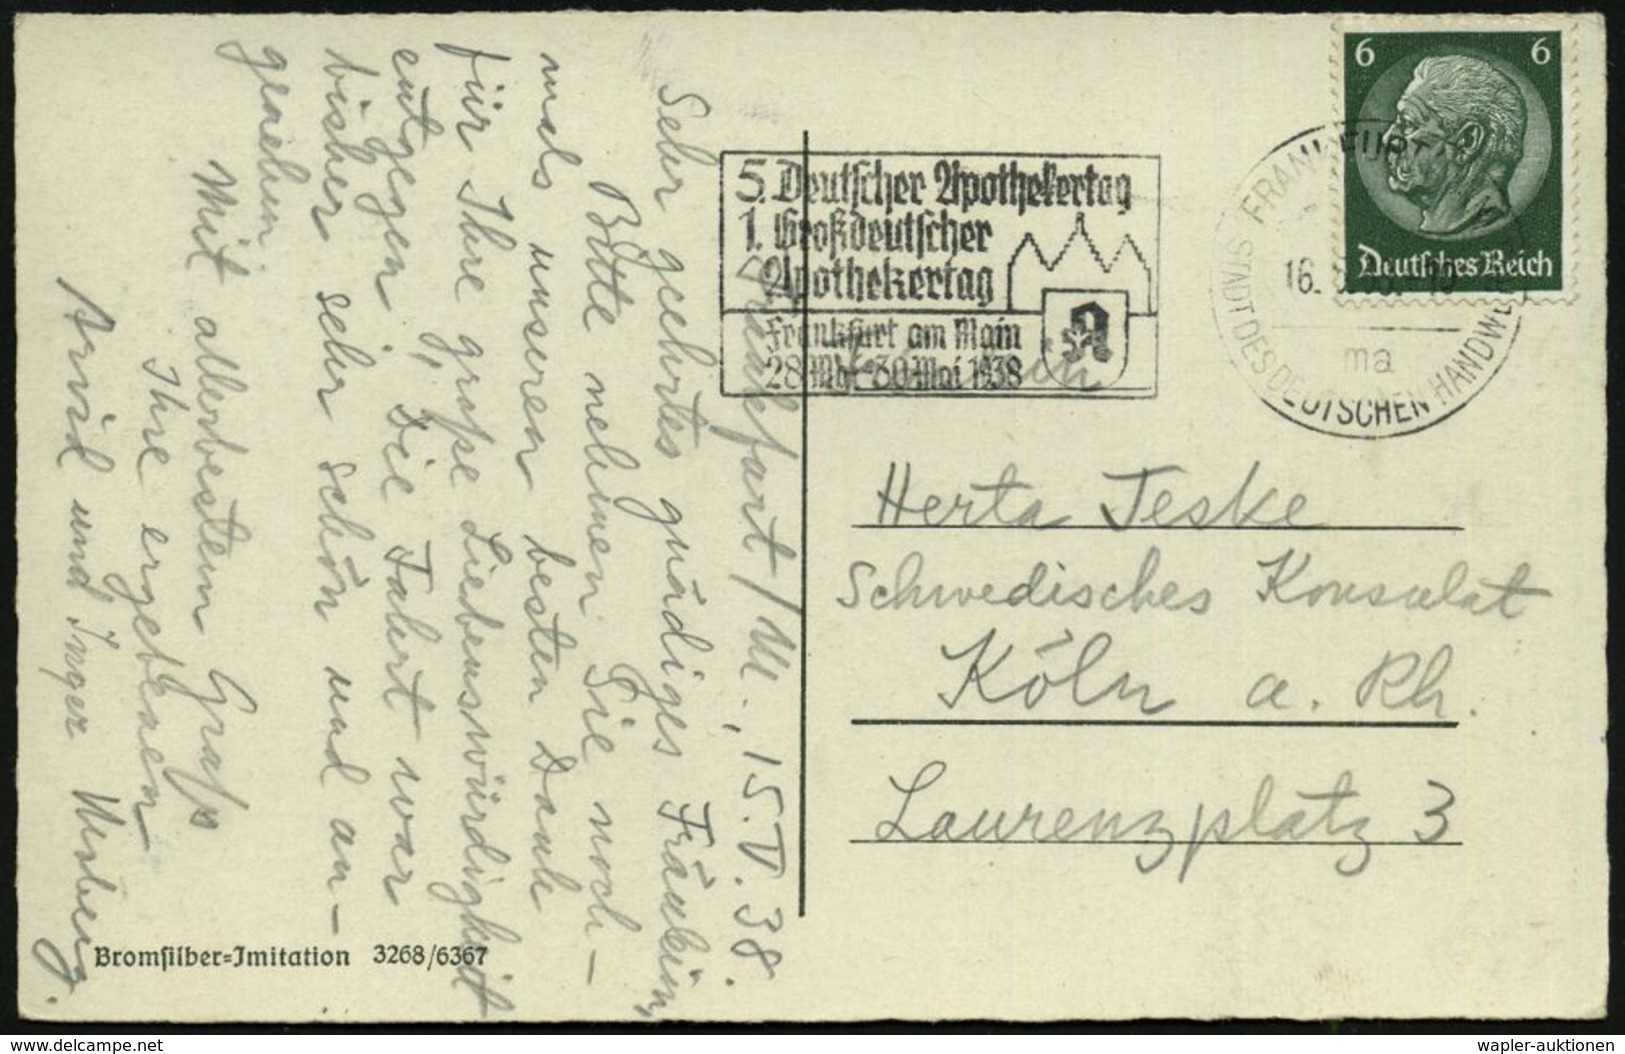 6 6
Deutsches Reich
STADT DES DEUTSCHEN HANDWE
16.
ma
5. Deutscher Apothekertag
1. Großdeutscher
Apothekertag
Frankfurt am Main
28. Mai-30. Mai 1938
A
Frankfurt/M., 15.V.38.
Sehr geehrtes gnädiges Fräulein
Bitte nehmen Sie noch-
mals unseren besten Dank
für Ihre große Liebenswürdigkeit
entgegen. Die Fahrt war
bisher sehr schön und an-
genehm
Mit allerbestem Gruß
Ihre ergebenen
Arvid und Inger Moberg.
Herta Teske
Schwedisches Konsulat
Köln a. Rh.
Laurenzplatz 3
Bromsilber-Imitation 3268/6367
www.delcampe.net
wapler-auktionen